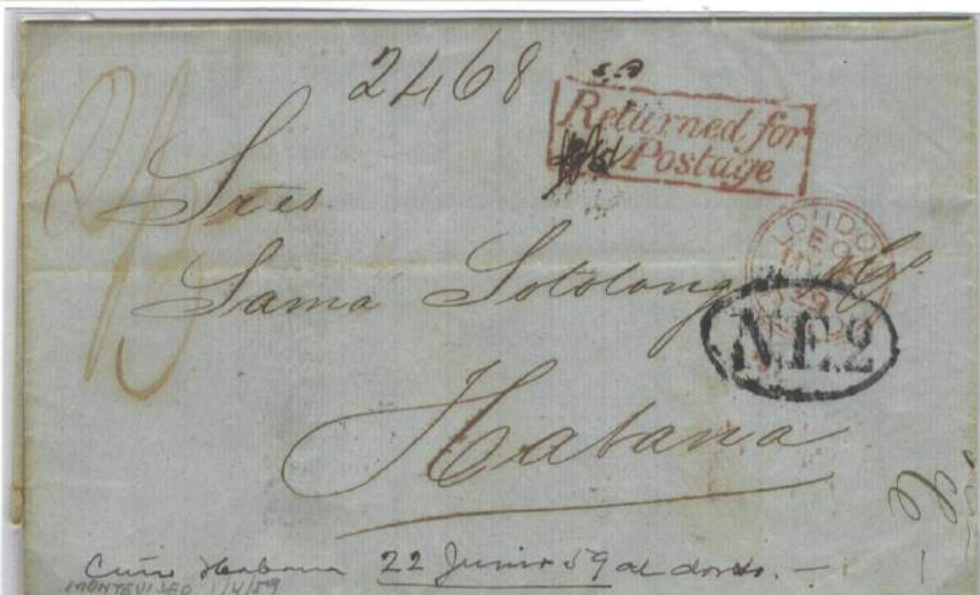 2468
Returned for
Postage
Sres.
Samá Sotolongo y Ca.
LONDO
59
N.E.2
Habana
2/3
Cuño Habana 22 Junio 59 al dorso. —
MONTEVIDEO 1/4/59